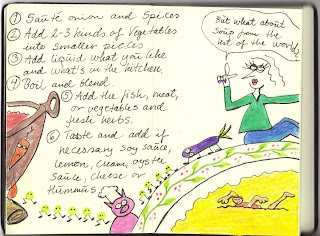 ① Sauté onion and Spices
② Add 2-3 kinds of Vegetables
into smaller pieces
③ Add liquid what you like
and what's in the kitchen.
④ Boil and blend.
⑤ Add the fish, meat,
or vegetables and
fresh herbs.
⑥ Taste and add if
necessary soy sauce,
lemon, cream, oyster
sauce, cheese or
Hummus.
But what about
Soup from the
rest of the world?